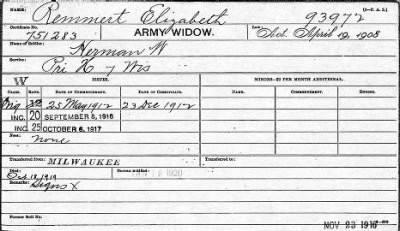 NAME: Remmert Elizabeth 93972
Certificate No. 751283 ARMY WIDOW. Law Act. April 19, 1908
Name of Soldier: Herman W
Service: Pri K 7 Wis
W RATES. MINORS—$2 PER MONTH ADDITIONAL.
CLASS. RATE. DATE OF COMMENCEMENT. DATE OF CERTIFICATE. NAME. COMMENCEMENT. ENDING.
Orig 12 25 May 1912 23 Dec 1912
INC. 20 SEPTEMBER 8, 1916
INC. 25 OCTOBER 6, 1917
Fees: None
Transferred from: MILWAUKEE Transferred to:
Died: Oct. 18, 1919 Bureau notified: 1920
Remarks: Signs X
Former Roll No.
NOV 23 1916